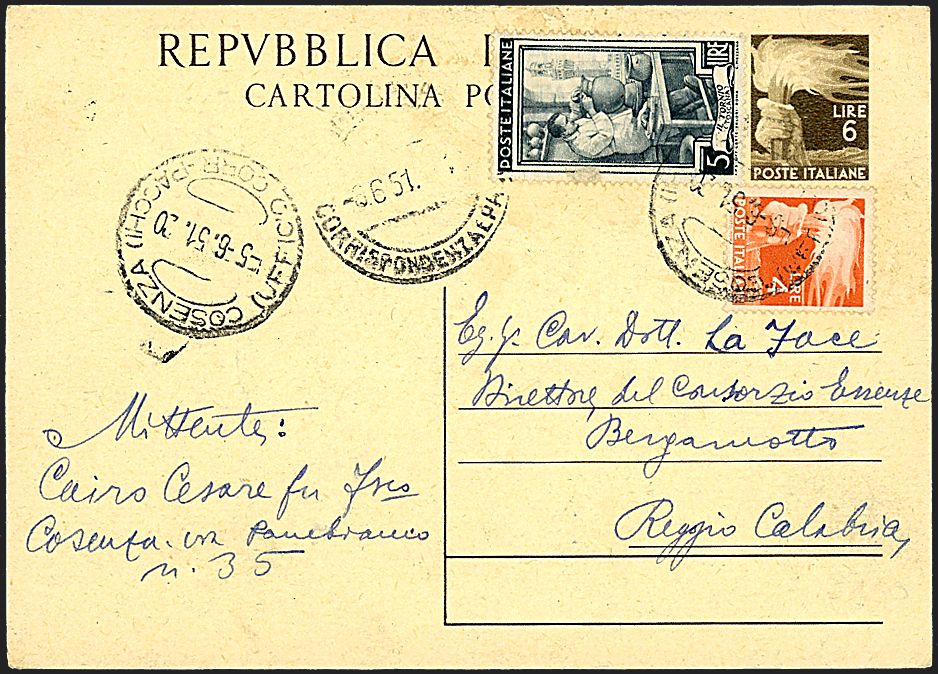 REPVBBLICA I
CARTOLINA PO
POSTE ITALIANE
5 LIRE
IL TORNIO
TOSCANA
LIRE
6
POSTE ITALIANE
POSTE ITALIANE
LIRE
4
COSENZA (UFFICIO CORR.-PACCHI)
5-6.51.20
-6.6.51.
CORRISPONDENZA EPA
COSENZA
Eg. g. Cav. Dott. La Face
Direttore del Consorzio Essenze
Bergamotto
Reggio Calabria,
Mittente:
Cairo Cesare fu
Cosenza. via Panebianco
n. 35